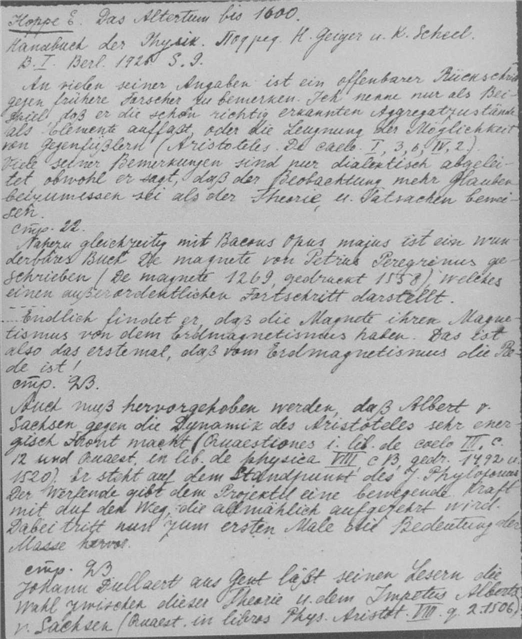 Hoppe E. Das Altertum bis 1600.
Handbuch der Physik. Под ред. H. Geiger u. K. Scheel.
B. I. Berl. 1926 S. 9.
An vielen seiner Angaben ist ein offenbarer Rückschritt
gegen frühere Forscher zu bemerken. Ich nenne nur als Bei-
spiel, daß er die schon richtig erkannten Aggregatzustände
als Elemente auffaßt, oder die Leugnung der Möglichkeit
von Gegenfüßlern (Aristoteles. De caelo I, 3, 6, IV, 2.)
Viele seiner Bemerkungen sind nur dialektisch abgelei-
tet obwohl er sagt, daß der Beobachtung mehr Glauben
beizumessen sei als der Theorie, u. Tatsachen bewei-
sen.
стр. 22.
Nahezu gleichzeitig mit Bacons Opus majus ist ein wun-
derbares Buch De magnete von Petrus Peregrinus ge-
schrieben (De magnete 1269, gedruckt 1558) welches
einen außerordentlichen Fortschritt darstellt.
... Endlich findet er, daß die Magnete ihren Magne-
tismus von dem Erdmagnetismus haben. Das ist
also das erstemal, daß vom Erdmagnetismus die Re-
de ist!
стр. 23.
Auch muß hervorgehoben werden, daß Albert v.
Sachsen gegen die Dynamik des Aristoteles sehr ener-
gisch Front macht (Quaestiones i. lib. de caelo III, c.
12 und Quaest. in lib. de physica VIII c 13, gedr. 1492 u.
1520). Er steht auf dem Standpunkt des J. Phyloponus
Der Werfende gibt dem Projektil eine bewegende Kraft
mit auf den Weg, die allmählich aufgezehrt wird.
Dabei tritt nun zum ersten Male die Bedeutung der
Masse hervor.
стр. 23
Johann Dullaert aus Gent läßt seinen Lesern die
Wahl zwischen dieser Theorie u. dem Impetus Alberts
v. Sachsen (Quaest. in libros Phys. Aristot. VIII. q. 2. 1506)